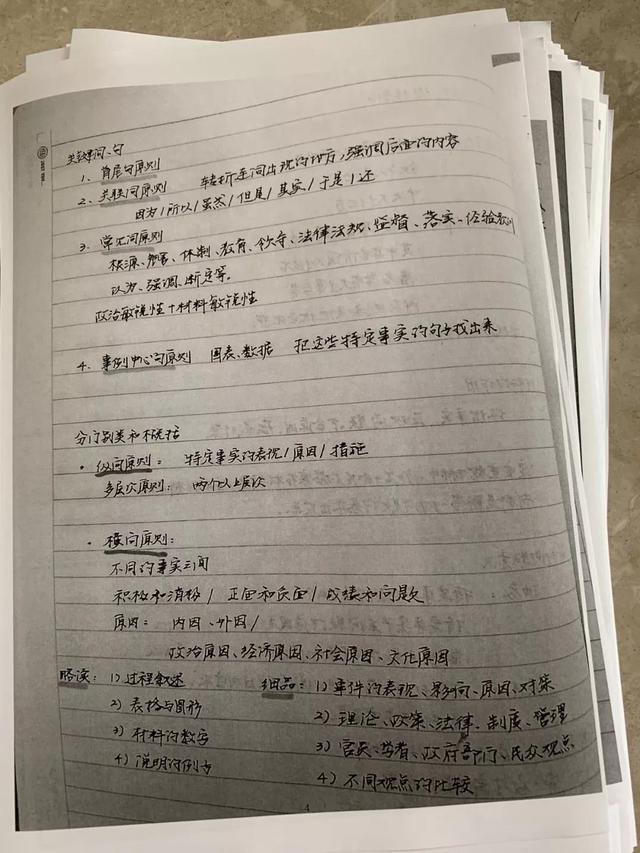 关键词、句
1. 首尾句原则
2. 关联词原则 转折连词出现的地方,强调后面的内容
因为/所以/虽然/但是/其实/于是/还
3. 常见词原则
根源、体制、教育、领导、法律法规、监督、落实、经验教训
认为、强调、断定等。
政治敏锐性+材料敏锐性
4. 事例中心句原则 图表、数据 把这些特定事实的句子找出来
分门别类和不
· 纵向原则: 特定事实的表现/原因/措施
多层次原则: 两个以上层次
· 横向原则:
不同的事实之间
积极和消极/正面和负面/成绩和问题
原因: 内因、外因/
政治原因、经济原因、社会原因、文化原因
略读: 1) 过程叙述 细品: 1) 事件的表现、影响、原因、对策
2) 表格与图形 2) 理论、政策、法律、制度、管理
3) 材料的数字 3) 官员、学者、政府部门、民众观点
4) 说明的例子 4) 不同观点的比较
4